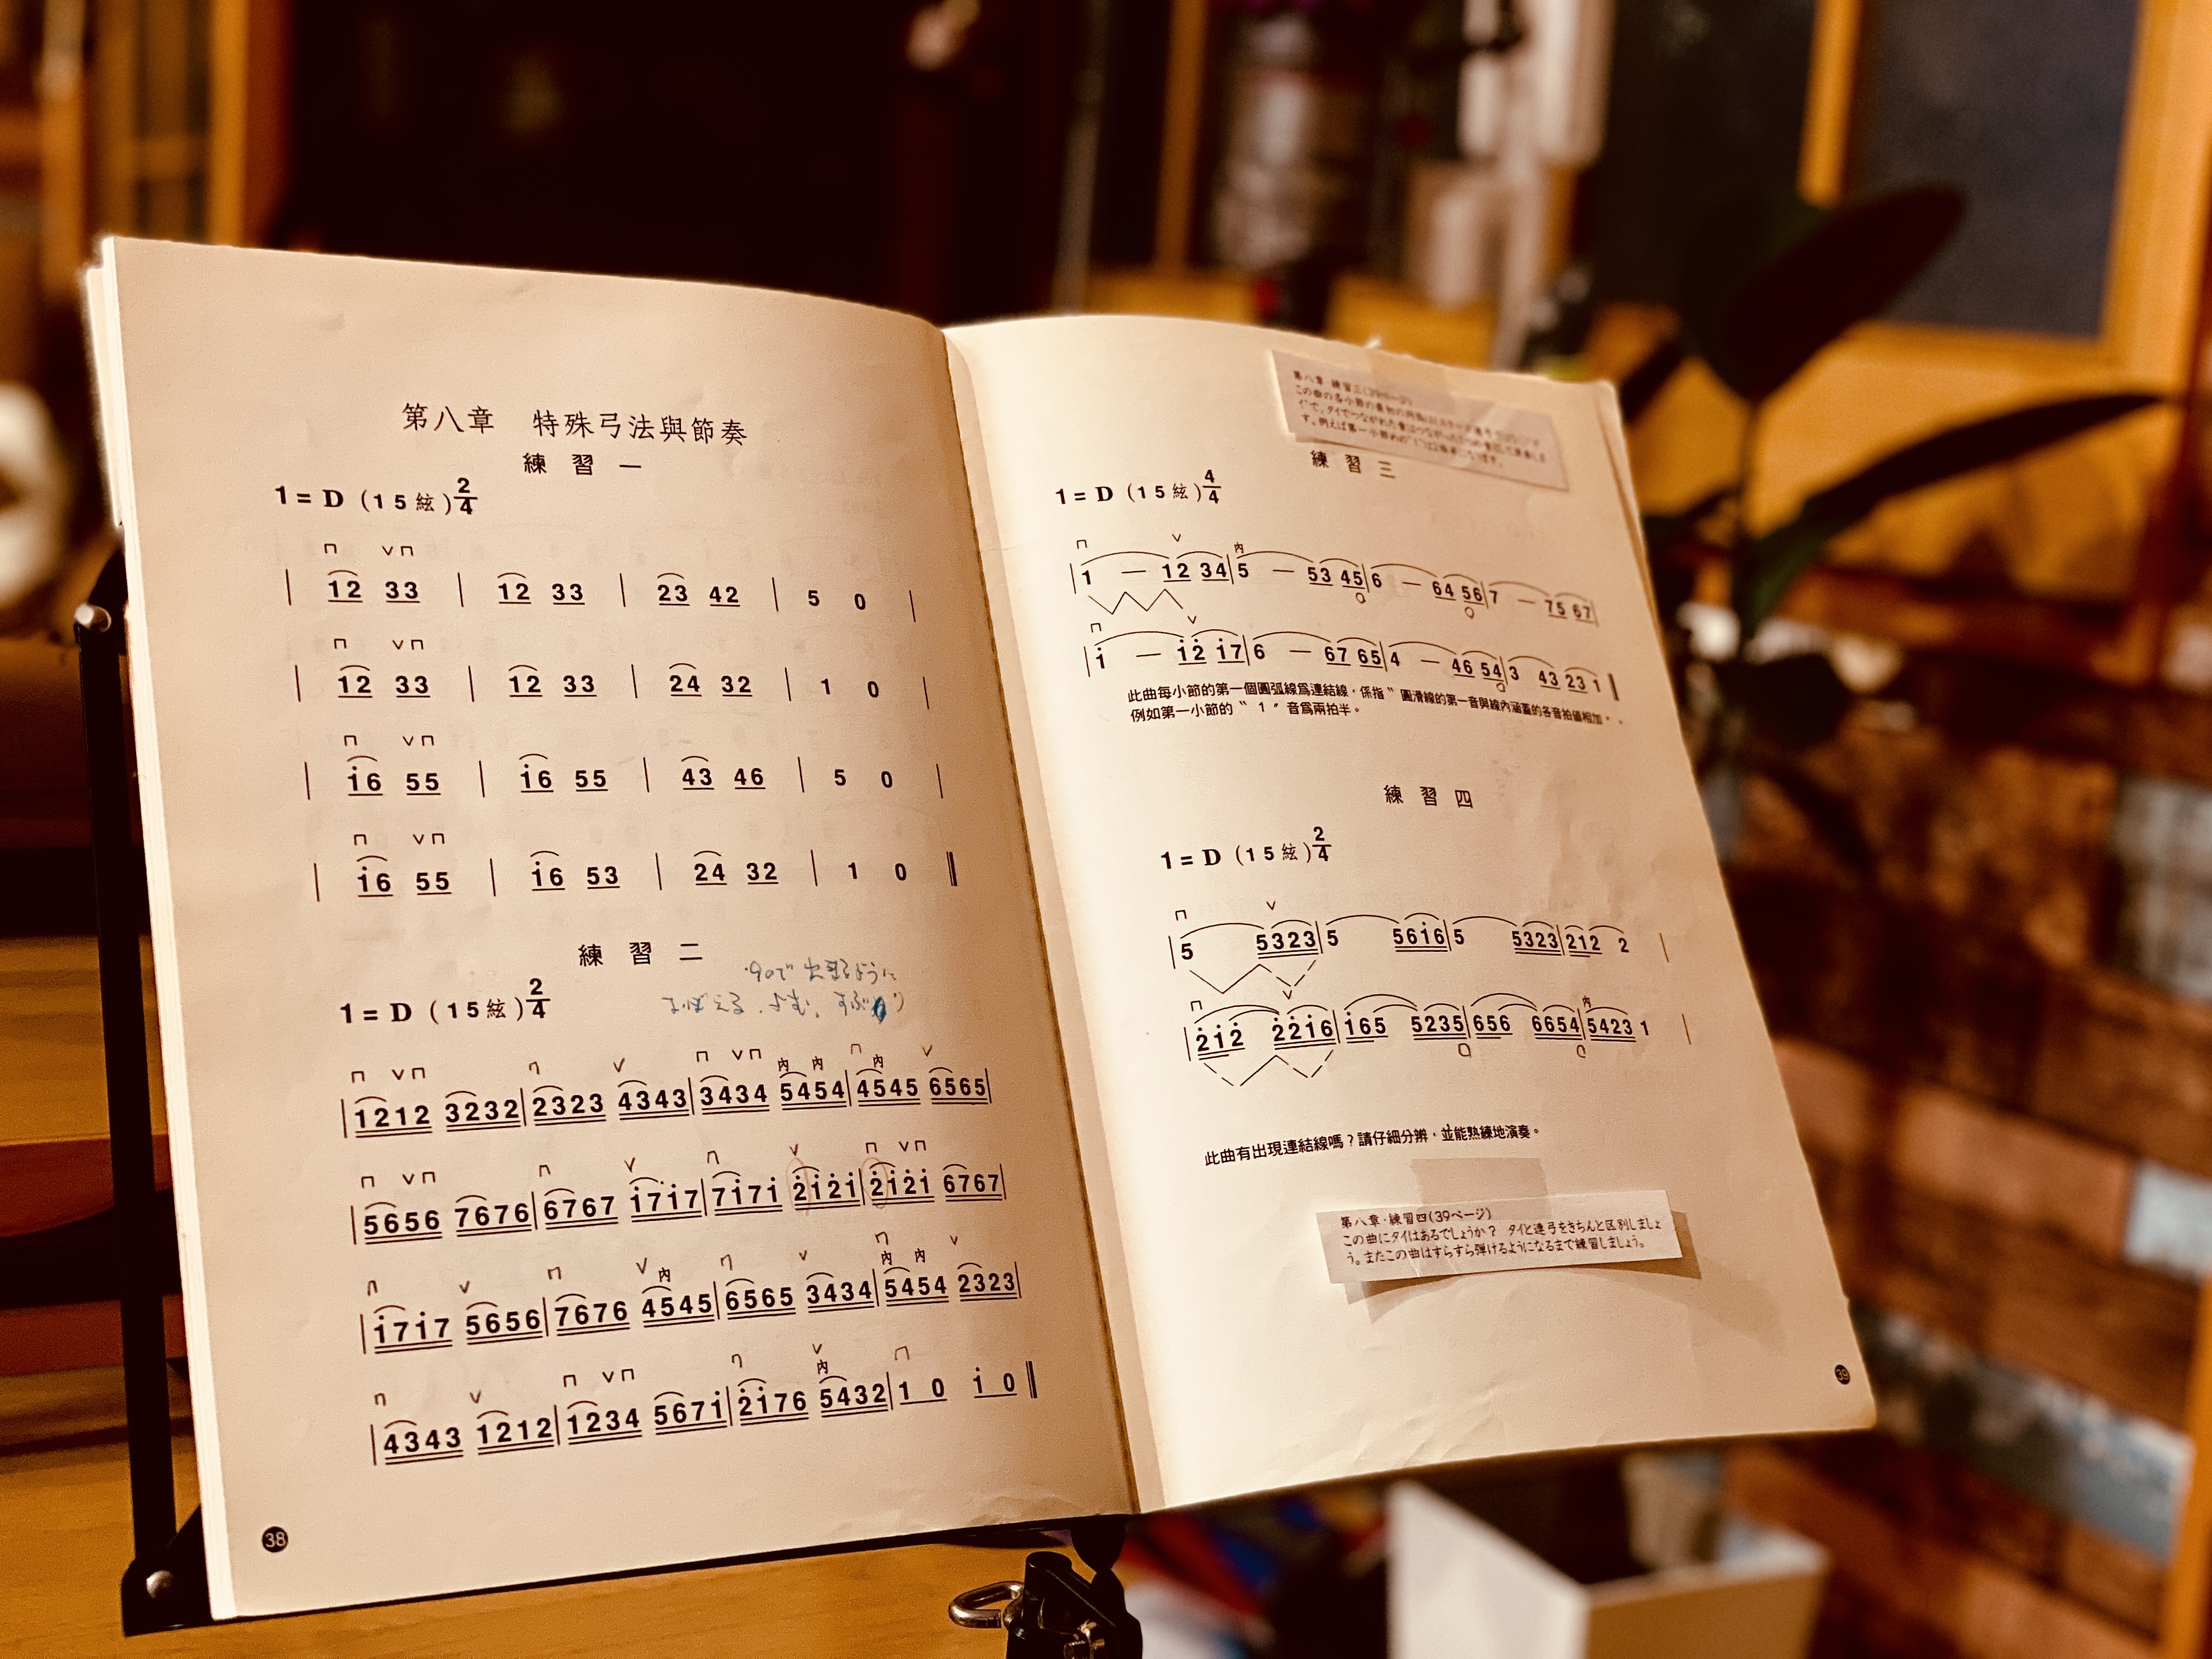 第八章 特殊弓法與節奏
練習一
1=D (15絃) 2/4
| 12 33 | 12 33 | 23 42 | 5 0 |
| 12 33 | 12 33 | 24 32 | 1 0 |
| i6 55 | i6 55 | 43 46 | 5 0 |
| i6 55 | i6 53 | 24 32 | 1 0 ‖
練習二
90で
1=D (15絃) 2/4
内 内 内
| 1212 3232 | 2323 4343 | 3434 5454 | 4545 6565 |
| 5656 7676 | 6767 i7i7 | 7i7i 2̇i2̇i | 2̇i2̇i 6767 |
内 内 内
| i7i7 5656 | 7676 4545 | 6565 3434 | 5454 2323 |
内
| 4343 1212 | 1234 567i | 2̇i76 5432 | 1 0 i 0 ‖
38
第八章·練習三(39ページ)
この曲の各小節の最初の
す。例えば第一小節めの"1"は2拍半になります。
練習三
1=D (15絃) 4/4
内
| 1 — 12 34 | 5 — 53 45 | 6 — 64 56 | 7 — 75 67 |
| i — i2̇ i7 | 6 — 67 65 | 4 — 46 54 | 3 43 23 1 ‖
此曲每小節的第一個圓弧線爲連結線，係指〝圓滑線的第一音與線內涵蓋的各音拍值相加。
例如第一小節的〝1〞音爲兩拍半。
練習四
1=D (15絃) 2/4
| 5 5323 | 5 56i6 | 5 5323 | 212 2 |
内
| 2̇i2̇ 2̇2̇i6 | i65 5235 | 656 6654 | 5423 1 |
此曲有出現連結線嗎？請仔細分辨，並能熟練地演奏。
第八章·練習四(39ページ)
この曲にタイはあるでしょうか？ タイと連弓をきちんと区別しましょ
う。またこの曲はすらすら弾けるようになるまで練習しましょう。
39